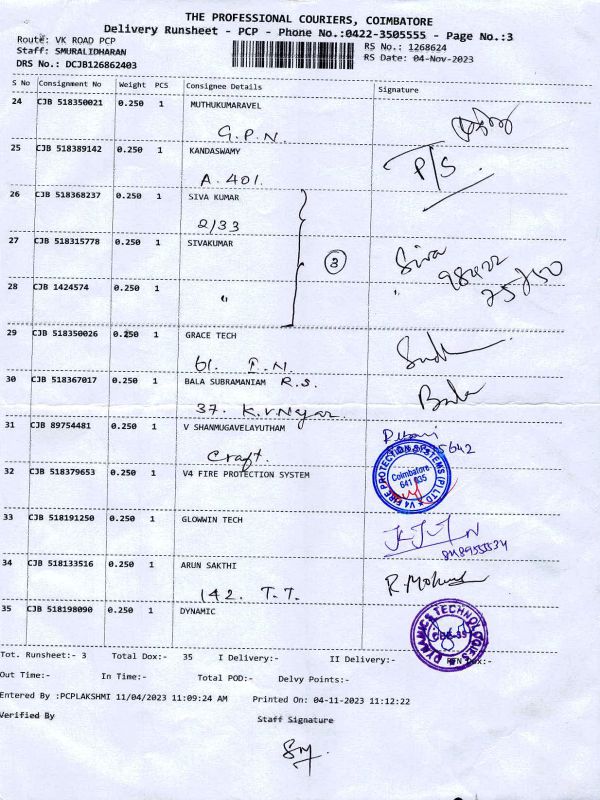 THE PROFESSIONAL COURIERS, COIMBATORE
Delivery Runsheet - PCP - Phone No.:0422-3505555 - Page No.:3
Route: VK ROAD PCP RS No.: 1268624
Staff: SMURALIDHARAN RS Date: 04-Nov-2023
DRS No.: DCJB126862403
S No Consignment No Weight PCS Consignee Details Signature
24 CJB 518350021 0.250 1 MUTHUKUMARAVEL
G.P.N.
25 CJB 518389142 0.250 1 KANDASWAMY P/S.
A. 401.
26 CJB 518368237 0.250 1 SIVA KUMAR
2/33
27 CJB 518315778 0.250 1 SIVAKUMAR Siva
3 98422
28 CJB 1424574 0.250 1 75750
29 CJB 518350026 0.250 1 GRACE TECH
61. I.N.
30 CJB 518367017 0.250 1 BALA SUBRAMANIAM R.S. Bala
37. K.V Nagar
31 CJB 89754481 0.250 1 V SHANMUGAVELAYUTHAM
Craft. 5642
32 CJB 518379653 0.250 1 V4 FIRE PROTECTION SYSTEM
V4 FIRE PROTECTION SYSTEMS (P) LTD
Coimbatore
641 035
33 CJB 518191250 0.250 1 GLOWWIN TECH
34 CJB 518133516 0.250 1 ARUN SAKTHI
142. T.T.
35 CJB 518198090 0.250 1 DYNAMIC
DYNAMICS TECHNOLOGIES
Tot. Runsheet:- 3 Total Dox:- 35 I Delivery:- II Delivery:-
Out Time:- In Time:- Total POD:- Delvy Points:-
Entered By :PCPLAKSHMI 11/04/2023 11:09:24 AM Printed On: 04-11-2023 11:12:22
Verified By Staff Signature